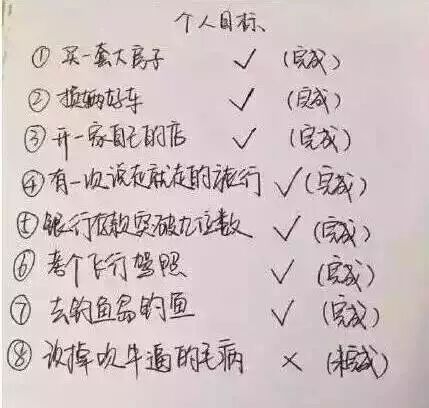 个人目标
① 买一套大房子 ✓ (完成)
② 换辆好车 ✓ (完成)
③ 开一家自己的店 ✓ (完成)
④ 有一次说走就走的旅行 ✓ (完成)
⑤ 银行存款突破九位数 ✓ (完成)
⑥ 考个飞行驾照 ✓ (完成)
⑦ 去钓鱼岛钓鱼 ✓ (完成)
⑧ 改掉吹牛逼的毛病 × (未完成)